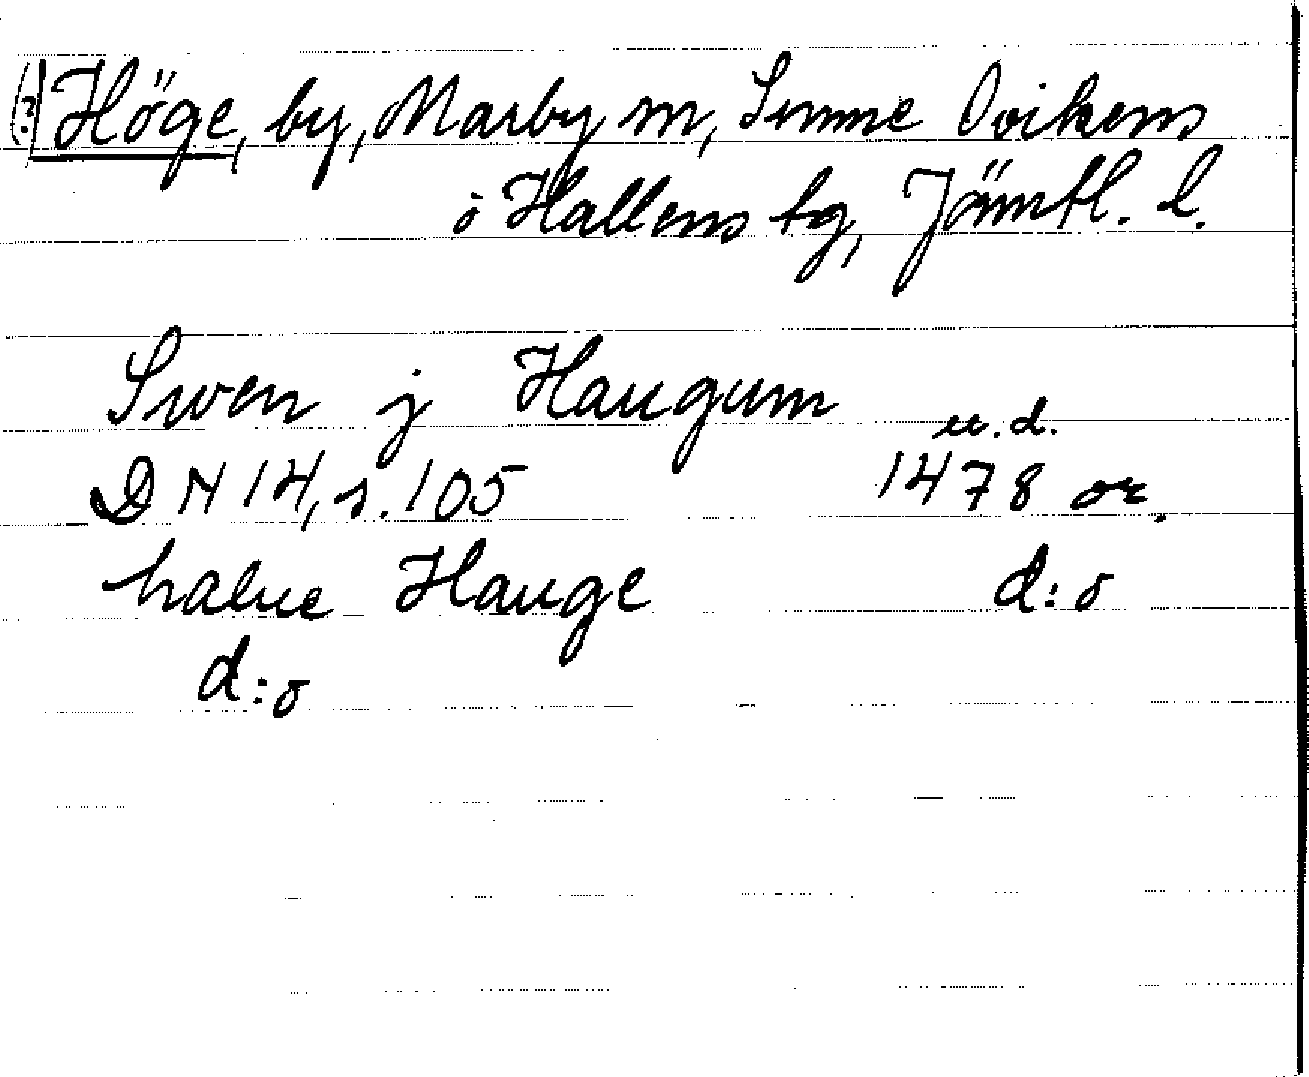 (?) Höge, by, Marby sn, Sunne Ovikens
o Hallens tg, Jämtl. l.
Swen j Haugum
u. d.
DN 14, s. 105 1478 or.
halue Hauge d:o
d:o